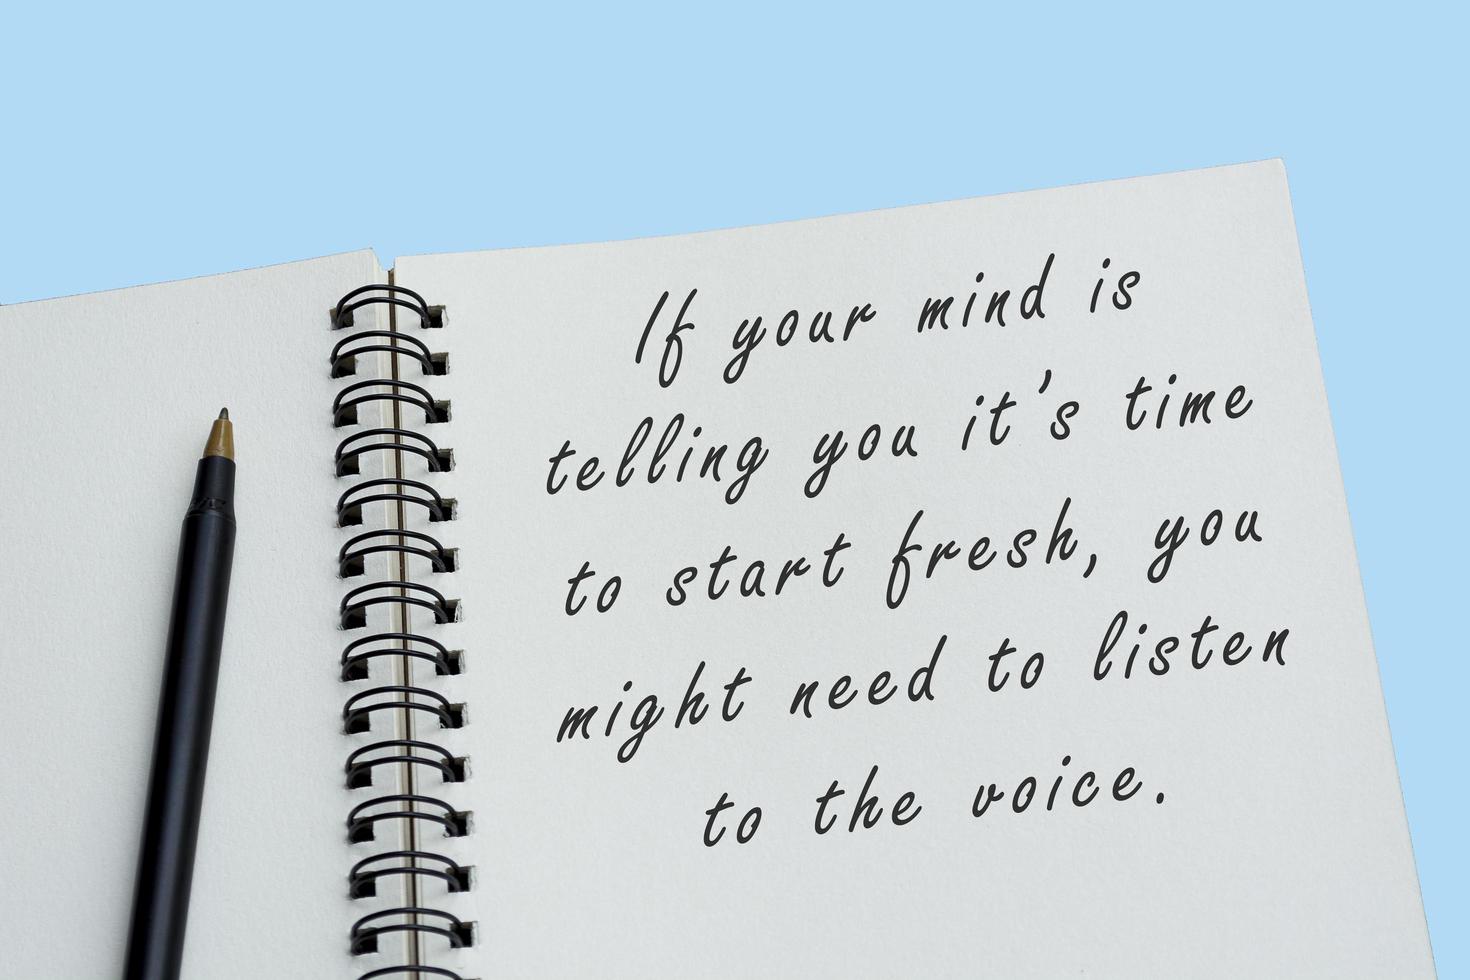 If your mind is
telling you it's time
to start fresh, you
might need to listen
to the voice.